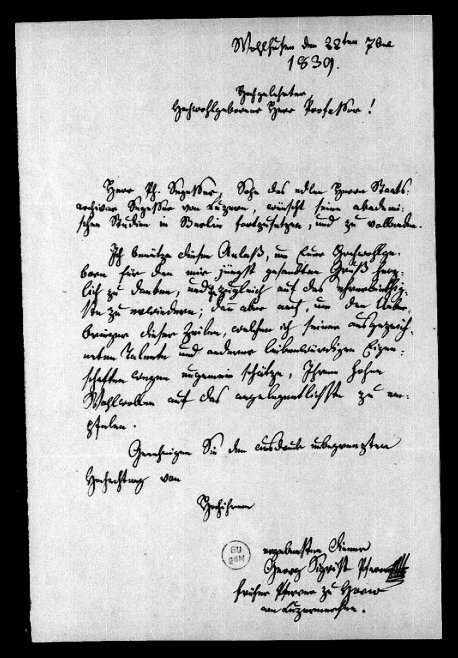 Wohlhusen den 22ten 7bre
1839.
Hochgelehrter
Hochwohlgeborner Herr Professor!
Herr Ph. Segesser, Sohn des edlen Herrn Staats-
archivar Segesser von Luzern, wünscht seine akademi-
schen Studien in Berlin fortzusetzen, und zu vollenden.
Ich benütze diesen Anlaß, um Eurer Hochwohlge-
born für den mir jüngst gesandten Gruß herz-
lich zu danken, und zugleich auf das ehrerbiethig-
ste zu erwiedern; dann aber auch, um den Ueber-
bringer dieser Zeilen, welchen ich seiner ausgezeich-
neten Talente und anderer liebenswürdigen Eigen-
schaften wegen ungemein schätze, Ihrem hohen
Wohlwollen auf das angelegentlichste zu em-
pfelen.
Genehmigen Sie den Ausdruck unbegrenzten
Hochachtung von
Hochihrem
ergebensten Diener
Georg Sigrist Pfarrer
früher Pfarrer zu Horw
am Luzernersee.